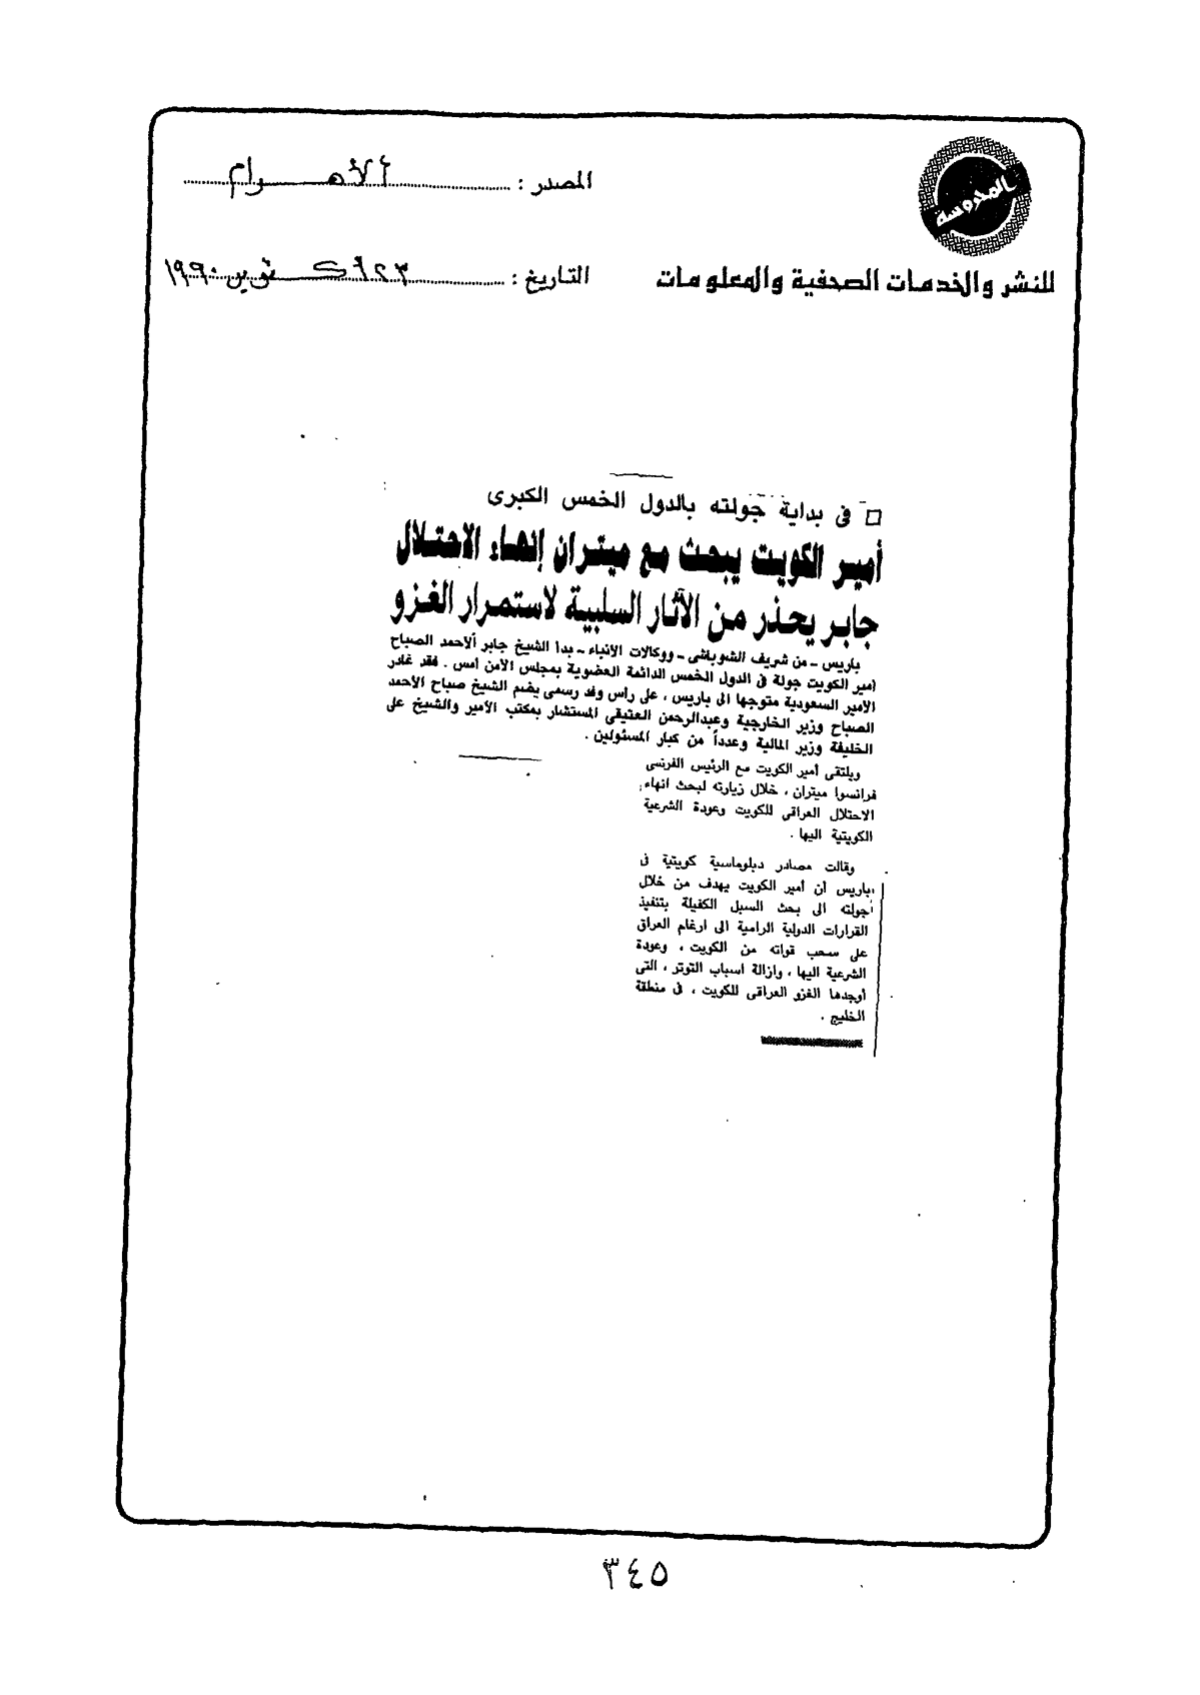 المحروسة
للنشر والخدمات الصحفية والمعلومات
المصدر : الأهرام
التاريخ : ٢٣ أكتوبر ١٩٩٠
□ فى بداية جولته بالدول الخمس الكبرى
أمير الكويت يبحث مع ميتران إنهاء الاحتلال
جابر يحذر من الآثار السلبية لاستمرار الغزو
باريس - من شريف الشوباشى - ووكالات الأنباء - بدأ الشيخ جابر الأحمد الصباح
أمير الكويت جولة فى الدول الخمس الدائمة العضوية بمجلس الأمن امس . فقد غادر
الأمير السعودية متوجها الى باريس ، على رأس وفد رسمى يضم الشيخ صباح الأحمد
الصباح وزير الخارجية وعبدالرحمن العتيقى المستشار بمكتب الأمير والشيخ على
الخليفة وزير المالية وعدداً من كبار المسئولين .
ويلتقى أمير الكويت مع الرئيس الفرنسى
فرانسوا ميتران ، خلال زيارته لبحث انهاء
الاحتلال العراقى للكويت وعودة الشرعية
الكويتية اليها .
وقالت مصادر دبلوماسية كويتية فى
باريس أن أمير الكويت يهدف من خلال
جولته الى بحث السبل الكفيلة بتنفيذ
القرارات الدولية الرامية الى ارغام العراق
على سحب قواته من الكويت ، وعودة
الشرعية اليها ، وازالة اسباب التوتر ، التى
أوجدها الغزو العراقى للكويت ، فى منطقة
الخليج .
٣٤٥